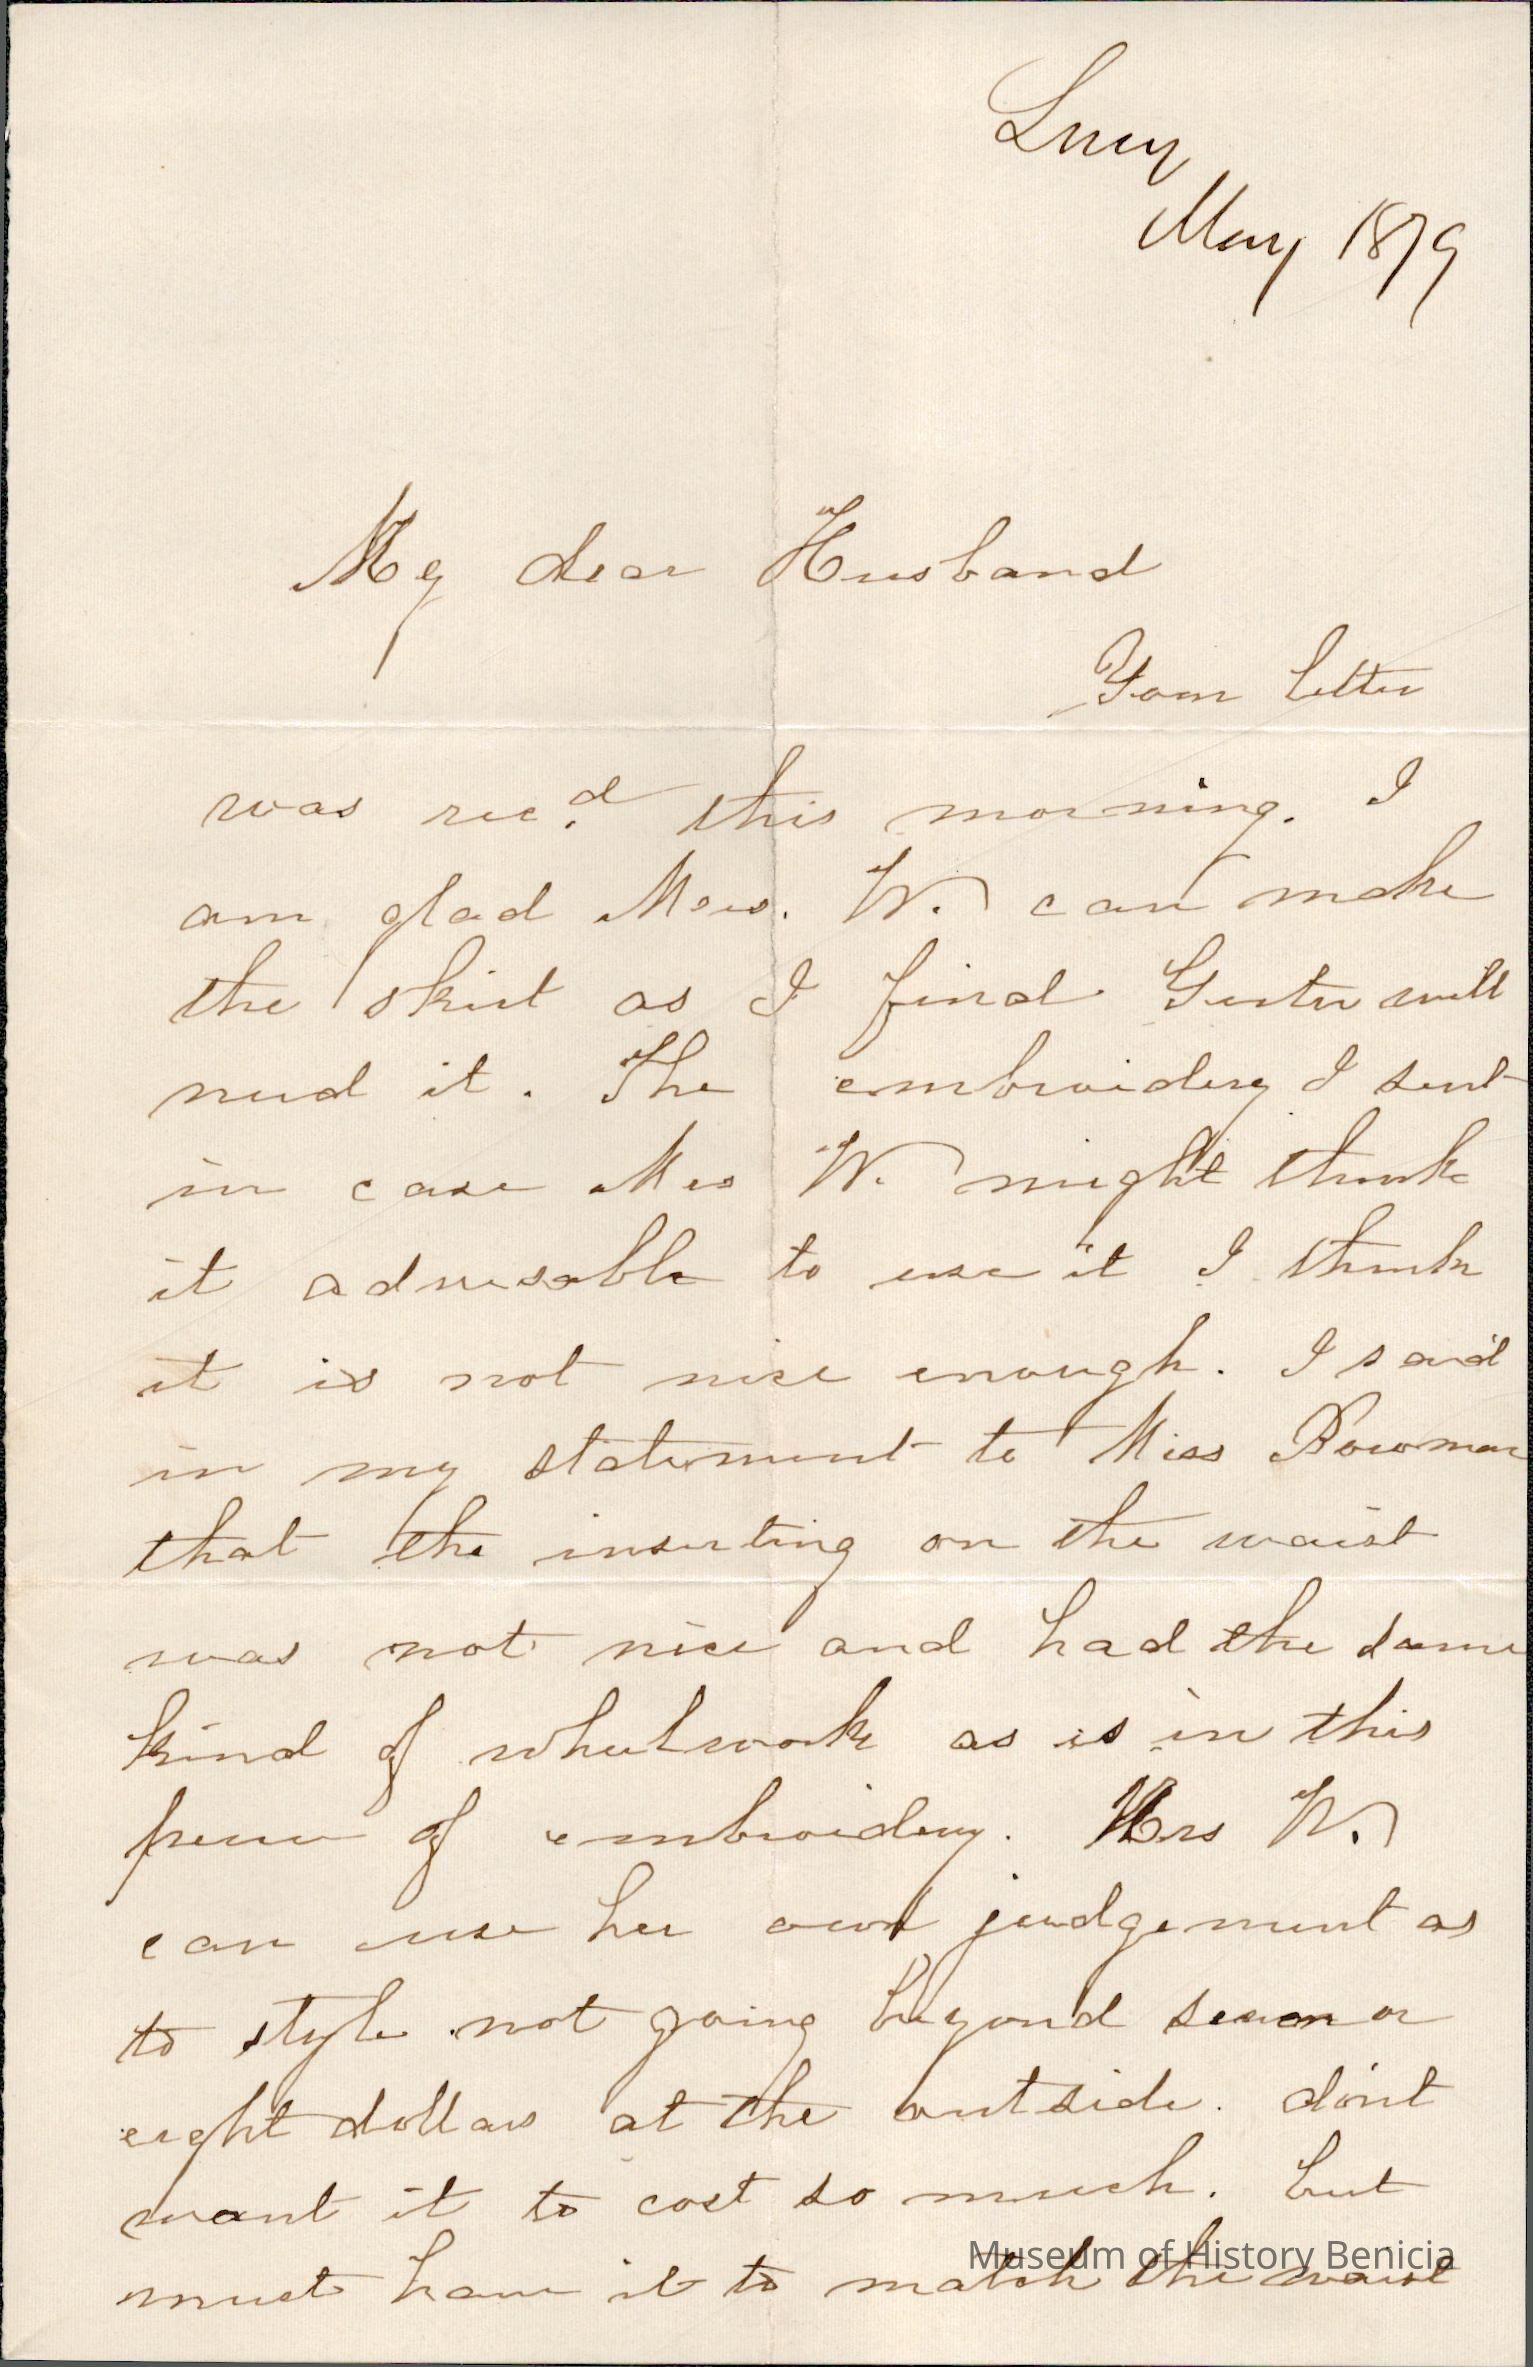 Lucy
May 1879
My dear Husband
Your letter
was rec.d this morning. I
am glad Mrs. W. can make
the skirt as I find Gertie will
need it. The embroidery I sent
in case Mrs W. might think
it advisable to use it I think
it is not nice enough. I said
in my statement to Miss Bowman
that the inserting on the waist
was not nice and had the same
kind of wheelwork as is in this
piece of embroidery. Mrs W.
can use her own judgement as
to style not going beyond seven or
eight dollars at the outside. don't
want it to cost so much. but
must have it to match the waist
Museum of History Benicia